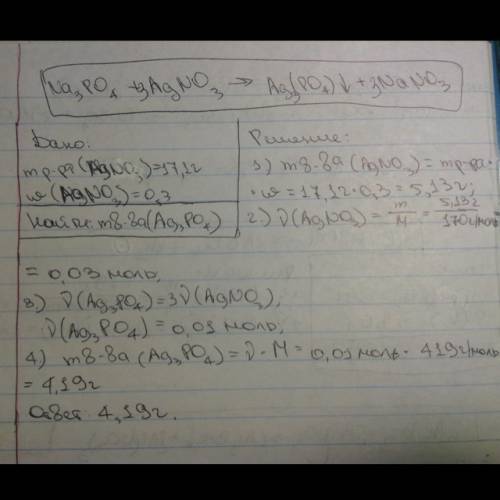 Na₃PO₄ + 3AgNO₃ → Ag₃(PO₄)↓ + 3NaNO₃
Дано:
m р-ра (AgNO₃) = 17,1г
ω (AgNO₃) = 0,3
Найти: m в-ва (Ag₃PO₄)
Решение:
1) m в-ва (AgNO₃) = m р-ра ·
· ω = 17,1г · 0,3 = 5,13г;
2) ν(AgNO₃) = m/M = 5,13г/170г/моль =
= 0,03 моль,
3) ν(Ag₃PO₄) = 3ν(AgNO₃),
ν(Ag₃PO₄) = 0,01 моль;
4) m в-ва (Ag₃PO₄) = ν · M = 0,01 моль · 419г/моль
= 4,19г
Ответ: 4,19г.